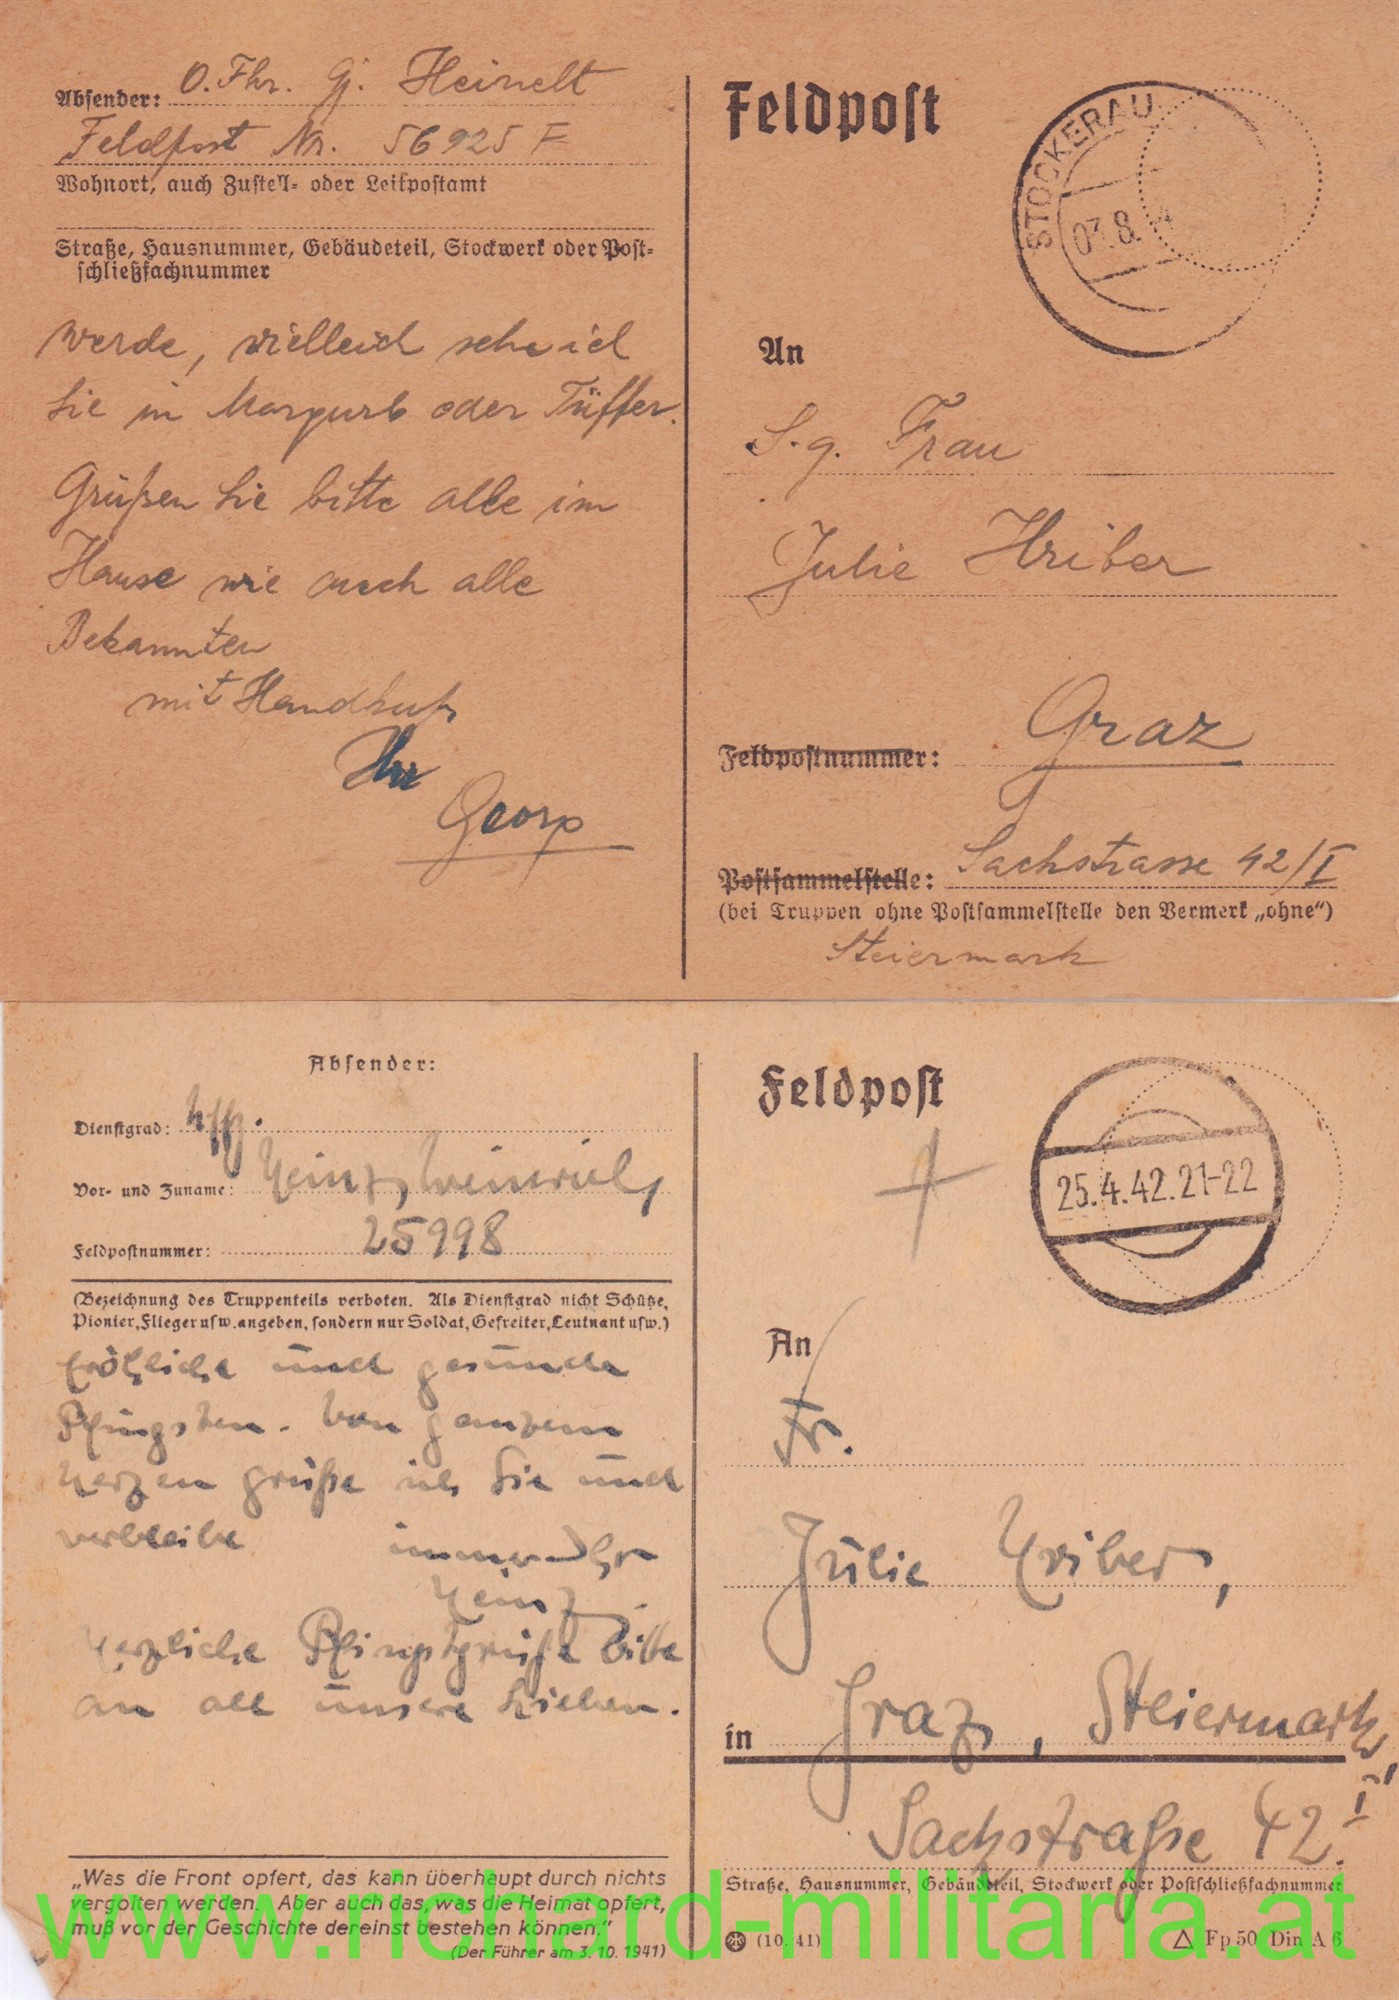 Absender: O. Fhr. Gg. Heinelt
Feldpost Nr. 56925 F
Wohnort, auch Zustell- oder Leitpostamt
Straße, Hausnummer, Gebäudeteil, Stockwerk oder Post-
schließfachnummer
werde, vielleich sehe ich
Sie in Margurb oder Tüffer.
Grüßen Sie bitte alle im
Hause wie auch alle
Bekannten
mit Handkuß
Ihr
Georg
Feldpost
STOCKERAU
8.
An
S.g. Frau
Julie Hriber
Feldpostnummer: Graz
Postsammelstelle: Sackstrasse 42/I
(bei Truppen ohne Postsammelstelle den Vermerk „ohne“)
Steiermark
Absender:
Dienstgrad: Uffz.
Vor- und Zuname: Heinz Weinrich,
Feldpostnummer: 25998
(Bezeichnung des Truppenteils verboten. Als Dienstgrad nicht Schütze,
Pionier, Flieger usw. angeben, sondern nur Soldat, Gefreiter, Leutnant usw.)
fröhliche und gesunde
Pfingsten. Von ganzem
Herzen grüße ich Sie und
verbleibe immer Ihr
Heinz
Herzliche Pfingstgrüße bitte
an all unsere Lieben.
„Was die Front opfert, das kann überhaupt durch nichts
vergolten werden. Aber auch das, was die Heimat opfert,
muß vor der Geschichte dereinst bestehen können.“
(Der Führer am 3. 10. 1941)
Feldpost
25.4.42.21-22
An
Fr.
Julie Hriber,
in Graz, Steiermark,
Sackstraße 42. I
Straße, Hausnummer, Gebäudeteil, Stockwerk oder Postschließfachnummer
(10. 41)
Fp 50 Din A 6
www.richard-militaria.at